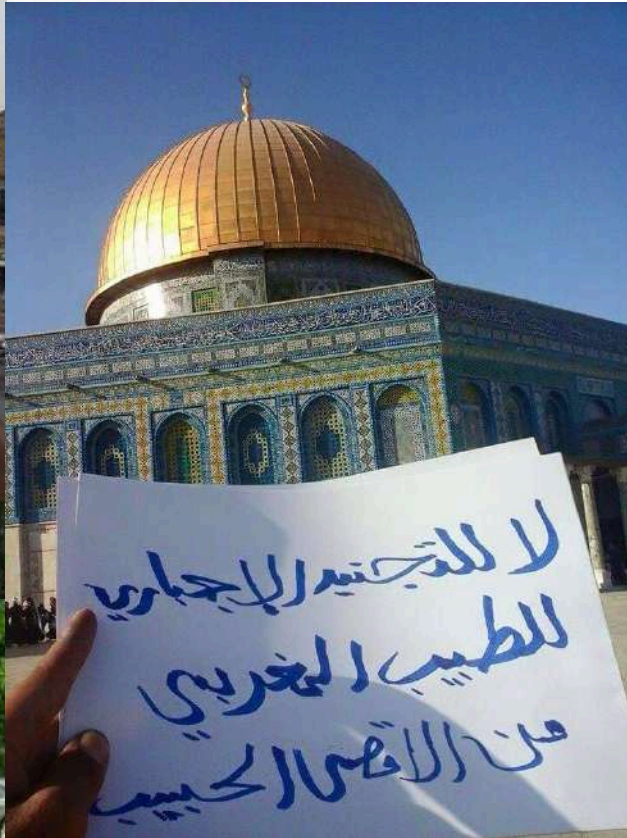 لا للتجنيد الإجباري
للطبيب المغربي
من الاقصى الحبيب